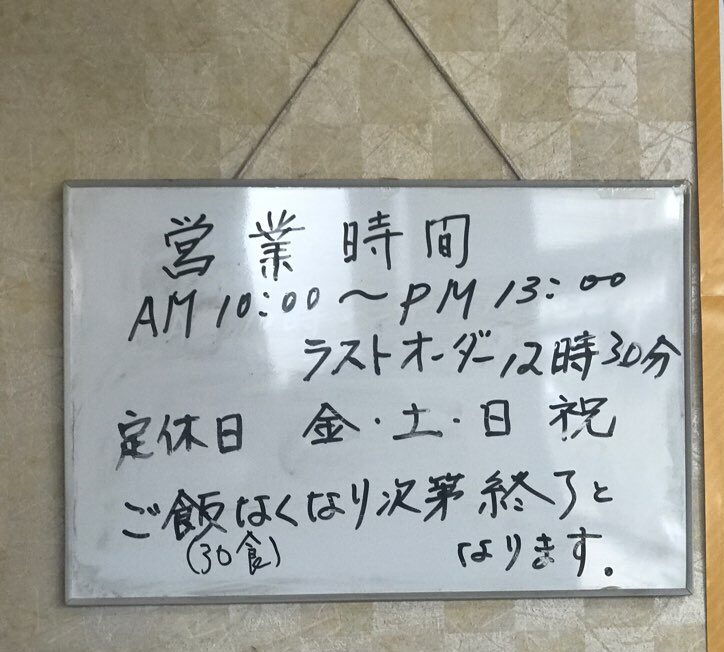 営業時間
AM10:00～PM13:00
ラストオーダー12時30分
定休日 金・土・日 祝
ご飯なくなり次第終了と
(30食) なります。